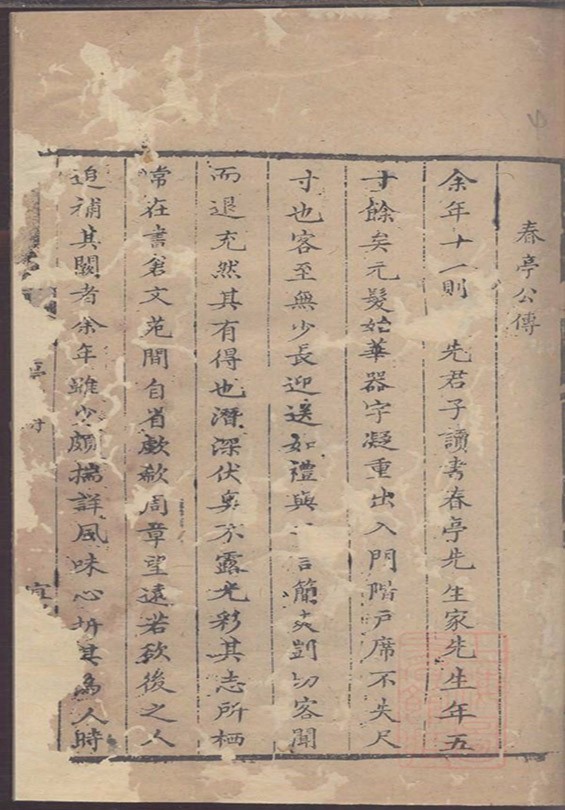 春亭公傳
余年十一則 先君子讀書春亭先生家先生年五
十餘矣元髮始華器宇凝重出入門階戶席不失尺
寸也客至無少長迎送如禮與 言簡爽剴切客聞
而退充然其有得也潛深伏奧不露光彩其志所栖
常在書倉文苑間自省欷歔周章望遠若欲後之人
追補其闕者余年雖少頗揣詳風味心折其為人時